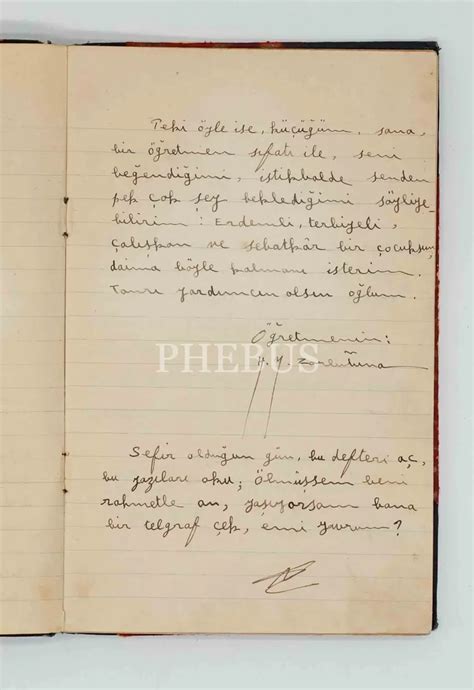 Peki öyle ise, küçüğüm, sana,
bir öğretmen sıfatı ile, seni
beğendiğimi, istikbalde senden
pek çok şey beklediğimi söyliye-
bilirim: Erdemli, terbiyeli,
çalışkan ve sebatkâr bir çocuksun,
daima böyle kalmanı isterim.
Tanrı yardımcın olsun oğlum.
Öğretmenin:
PHEBUS
H. N. Zorlutuna
Sefir olduğun gün, bu defteri aç,
bu yazıları oku; Ölmüşsem beni
rahmetle an, yaşıyorsam bana
bir telgraf çek, emi yavrum?